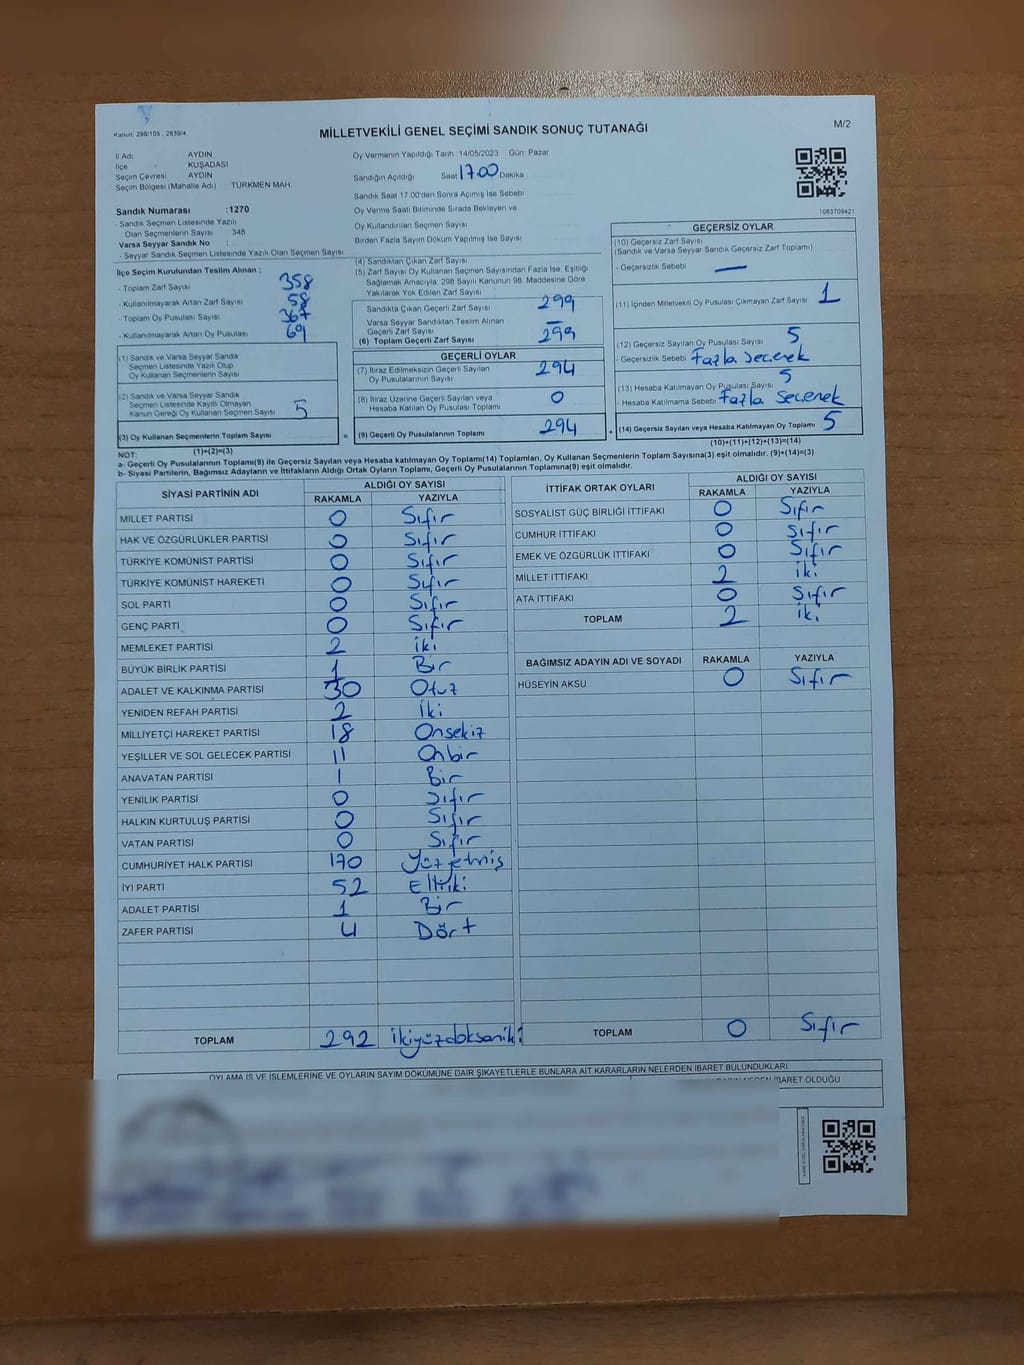 Kanun: 298/105 , 2839/4
MİLLETVEKİLİ GENEL SEÇİMİ SANDIK SONUÇ TUTANAĞI
M/2
İl Adı AYDIN
İlçe KUŞADASI
Seçim Çevresi AYDIN
Seçim Bölgesi (Mahalle Adı) TÜRKMEN MAH.
Sandık Numarası :1270
- Sandık Seçmen Listesinde Yazılı
Olan Seçmenlerin Sayısı 348
Varsa Seyyar Sandık No :
- Seyyar Sandık Seçmen Listesinde Yazılı Olan Seçmen Sayısı
Oy Vermenin Yapıldığı Tarih 14/05/2023 Gün: Pazar
Sandığın Açıldığı Saat 17.00 Dakika
Sandık Saat 17:00'den Sonra Açımış İse Sebebi
Oy Verme Saati Bitiminde Sırada Bekleyen ve
Oy Kullandırılan Seçmen Sayısı
Birden Fazla Sayım Döküm Yapılmış İse Sayısı
1083709421
İlçe Seçim Kurulundan Teslim Alınan ;
- Toplam Zarf Sayısı 358
- Kullanılmayarak Artan Zarf Sayısı 58
- Toplam Oy Pusulası Sayısı 367
- Kullanılmayarak Artan Oy Pusulası 69
(1) Sandık ve Varsa Seyyar Sandık
Seçmen Listesinde Yazılı Olup
Oy Kullanan Seçmenlerin Sayısı
(2) Sandık ve Varsa Seyyar Sandık
Seçmen Listesinde Kayıtlı Olmayan
Kanun Gereği Oy Kullanan Seçmen Sayısı 5
(3) Oy Kullanan Seçmenlerin Toplam Sayısı
(1)+(2)=(3)
(4) Sandıktan Çıkan Zarf Sayısı
(5) Zarf Sayısı Oy Kullanan Seçmen Sayısından Fazla İse, Eşitliği
Sağlamak Amacıyla, 298 Sayılı Kanunun 98. Maddesine Göre
Yakılarak Yok Edilen Zarf Sayısı
Sandıkta Çıkan Geçerli Zarf Sayısı 299
Varsa Seyyar Sandıktan Teslim Alınan
Geçerli Zarf Sayısı —
(6) Toplam Geçerli Zarf Sayısı 299
GEÇERLİ OYLAR
(7) İtiraz Edilmeksizin Geçerli Sayılan
Oy Pusulalarının Sayısı 294
(8) İtiraz Üzerine Geçerli Sayılan veya
Hesaba Katılan Oy Pusulası Toplamı 0
= (9) Geçerli Oy Pusulalarının Toplamı 294 +
GEÇERSİZ OYLAR
(10) Geçersiz Zarf Sayısı
(Sandık ve Varsa Seyyar Sandık Geçersiz Zarf Toplamı)
- Geçersizlik Sebebi —
(11) İçinden Milletvekili Oy Pusulası Çıkmayan Zarf Sayısı 1
(12) Geçersiz Sayılan Oy Pusulası Sayısı 5
- Geçersizlik Sebebi Fazla Secenek
(13) Hesaba Katılmayan Oy Pusulası Sayısı 5
- Hesaba Katılmama Sebebi Fazla Secenek
(14) Geçersiz Sayılan veya Hesaba Katılmayan Oy Toplamı 5
(10)+(11)+(12)+(13)=(14)
NOT:
a- Geçerli Oy Pusulalarının Toplamı(9) ile Geçersiz Sayılan veya Hesaba katılmayan Oy Toplamı(14) Toplamları, Oy Kullanan Seçmenlerin Toplam Sayısına(3) eşit olmalıdır. (9)+(14)=(3)
b- Siyasi Partilerin, Bağımsız Adayların ve İttifakların Aldığı Ortak Oyların Toplamı, Geçerli Oy Pusulalarının Toplamına(9) eşit olmalıdır.
SİYASİ PARTİNİN ADI ALDIĞI OY SAYISI
RAKAMLA YAZIYLA
MİLLET PARTİSİ 0 Sıfır
HAK VE ÖZGÜRLÜKLER PARTİSİ 0 Sıfır
TÜRKİYE KOMÜNİST PARTİSİ 0 Sıfır
TÜRKİYE KOMÜNİST HAREKETİ 0 Sıfır
SOL PARTİ 0 Sıfır
GENÇ PARTİ 0 Sıfır
MEMLEKET PARTİSİ 2 iki
BÜYÜK BİRLİK PARTİSİ 1 Bir
ADALET VE KALKINMA PARTİSİ 30 Otuz
YENİDEN REFAH PARTİSİ 2 İki
MİLLİYETÇİ HAREKET PARTİSİ 18 Onsekiz
YEŞİLLER VE SOL GELECEK PARTİSİ 11 Onbir
ANAVATAN PARTİSİ 1 Bir
YENİLİK PARTİSİ 0 Sıfır
HALKIN KURTULUŞ PARTİSİ 0 Sıfır
VATAN PARTİSİ 0 Sıfır
CUMHURİYET HALK PARTİSİ 170 Yüzyetmiş
İYİ PARTİ 52 Elliiki
ADALET PARTİSİ 1 Bir
ZAFER PARTİSİ 4 Dört
TOPLAM 292 ikiyüzdoksaniki
İTTİFAK ORTAK OYLARI ALDIĞI OY SAYISI
RAKAMLA YAZIYLA
SOSYALİST GÜÇ BİRLİĞİ İTTİFAKI 0 Sıfır
CUMHUR İTTİFAKI 0 Sıfır
EMEK VE ÖZGÜRLÜK İTTİFAKI 0 Sıfır
MİLLET İTTİFAKI 2 iki
ATA İTTİFAKI 0 Sıfır
TOPLAM 2 iki
BAĞIMSIZ ADAYIN ADI VE SOYADI RAKAMLA YAZIYLA
HÜSEYİN AKSU 0 Sıfır
TOPLAM 0 Sıfır
OYLAMA İŞ VE İŞLEMLERİNE VE OYLARIN SAYIM DÖKÜMÜNE DAİR ŞİKAYETLERLE BUNLARA AİT KARARLARIN NELERDEN İBARET BULUNDUKLARI
İBARET OLDUĞU